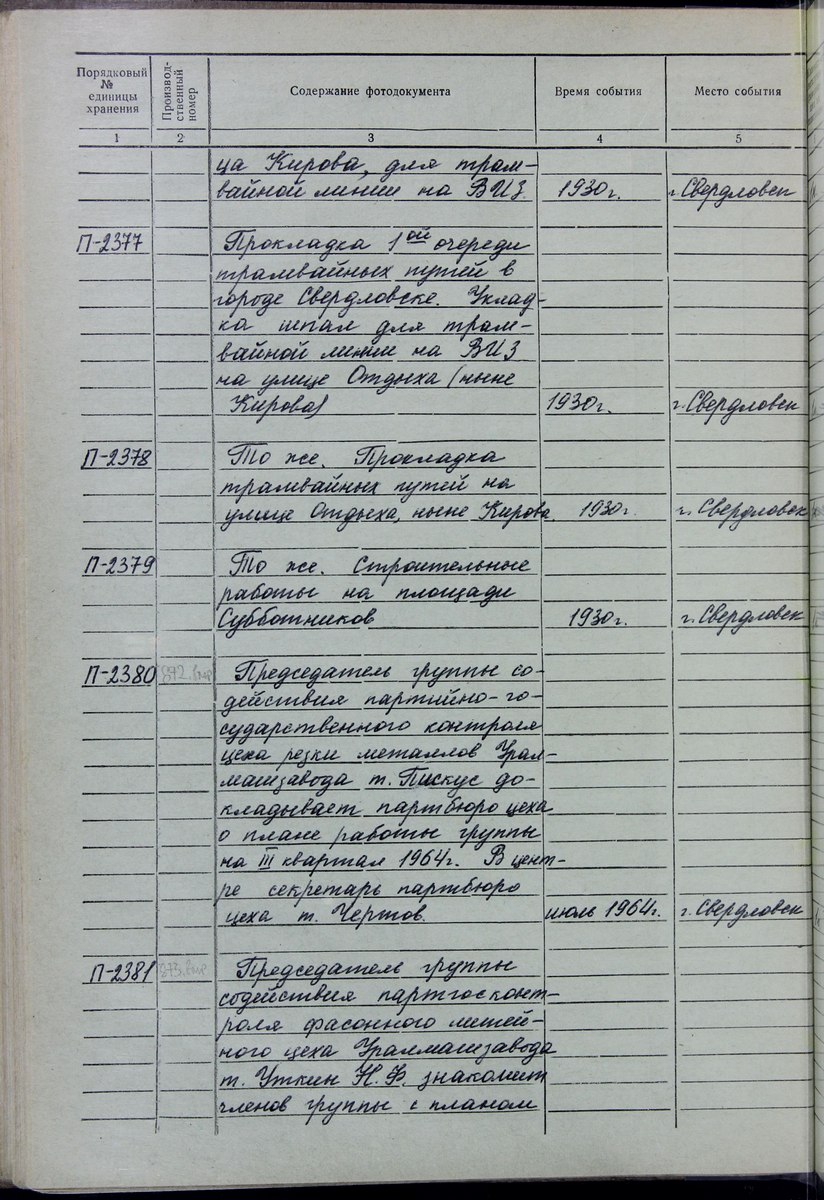 Порядковый № единицы хранения
Производ-ственный номер
Содержание фотодокумента
Время события
Место события
1 2 3 4 5
ца Кирова, для трам-
вайной линии на ВИЗ. 1930 г. г. Свердловск
П-2377 Прокладка 1ой очереди
трамвайных путей в
городе Свердловске. Уклад-
ка шпал для трам-
вайной линии на ВИЗ
на улице Отдыха (ныне
Кирова) 1930 г. г. Свердловск
П-2378 То же. Прокладка
трамвайных путей на
улице Отдыха, ныне Кирова 1930 г. г. Свердловск
П-2379 То же. Строительные
работы на площади
Субботников 1930 г. г. Свердловск
П-2380 Председатель группы со-
действия партийно-го-
сударственного контроля
цеха резки металлов Урал-
машзавода т. Пискус до-
кладывает партбюро цеха
о плане работы группы
на III квартал 1964 г. В цент-
ре секретарь партбюро
цеха т. Чертов. июль 1964 г. г. Свердловск
П-2381 Председатель группы
содействия партгосконт-
роля фасонного литей-
ного цеха Уралмашзавода
т. Уткин Н. Ф. знакомит
членов группы с планом